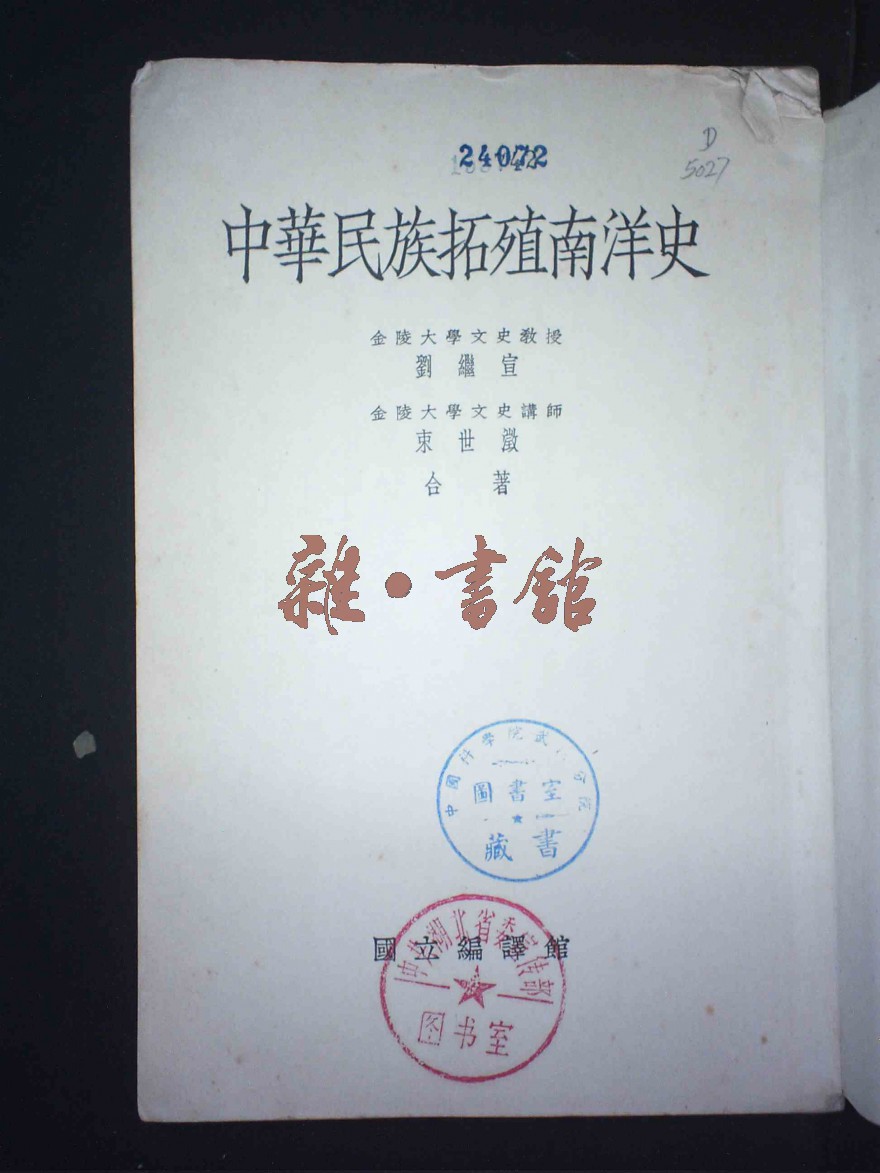 24072
D
5027
中華民族拓殖南洋史
金陵大學文史教授
劉繼宣
金陵大學文史講師
束世澂
合著
雜·書館
中國科學院武
圖書室
藏書
國立編譯館
中共湖北省委宣传部
图书室